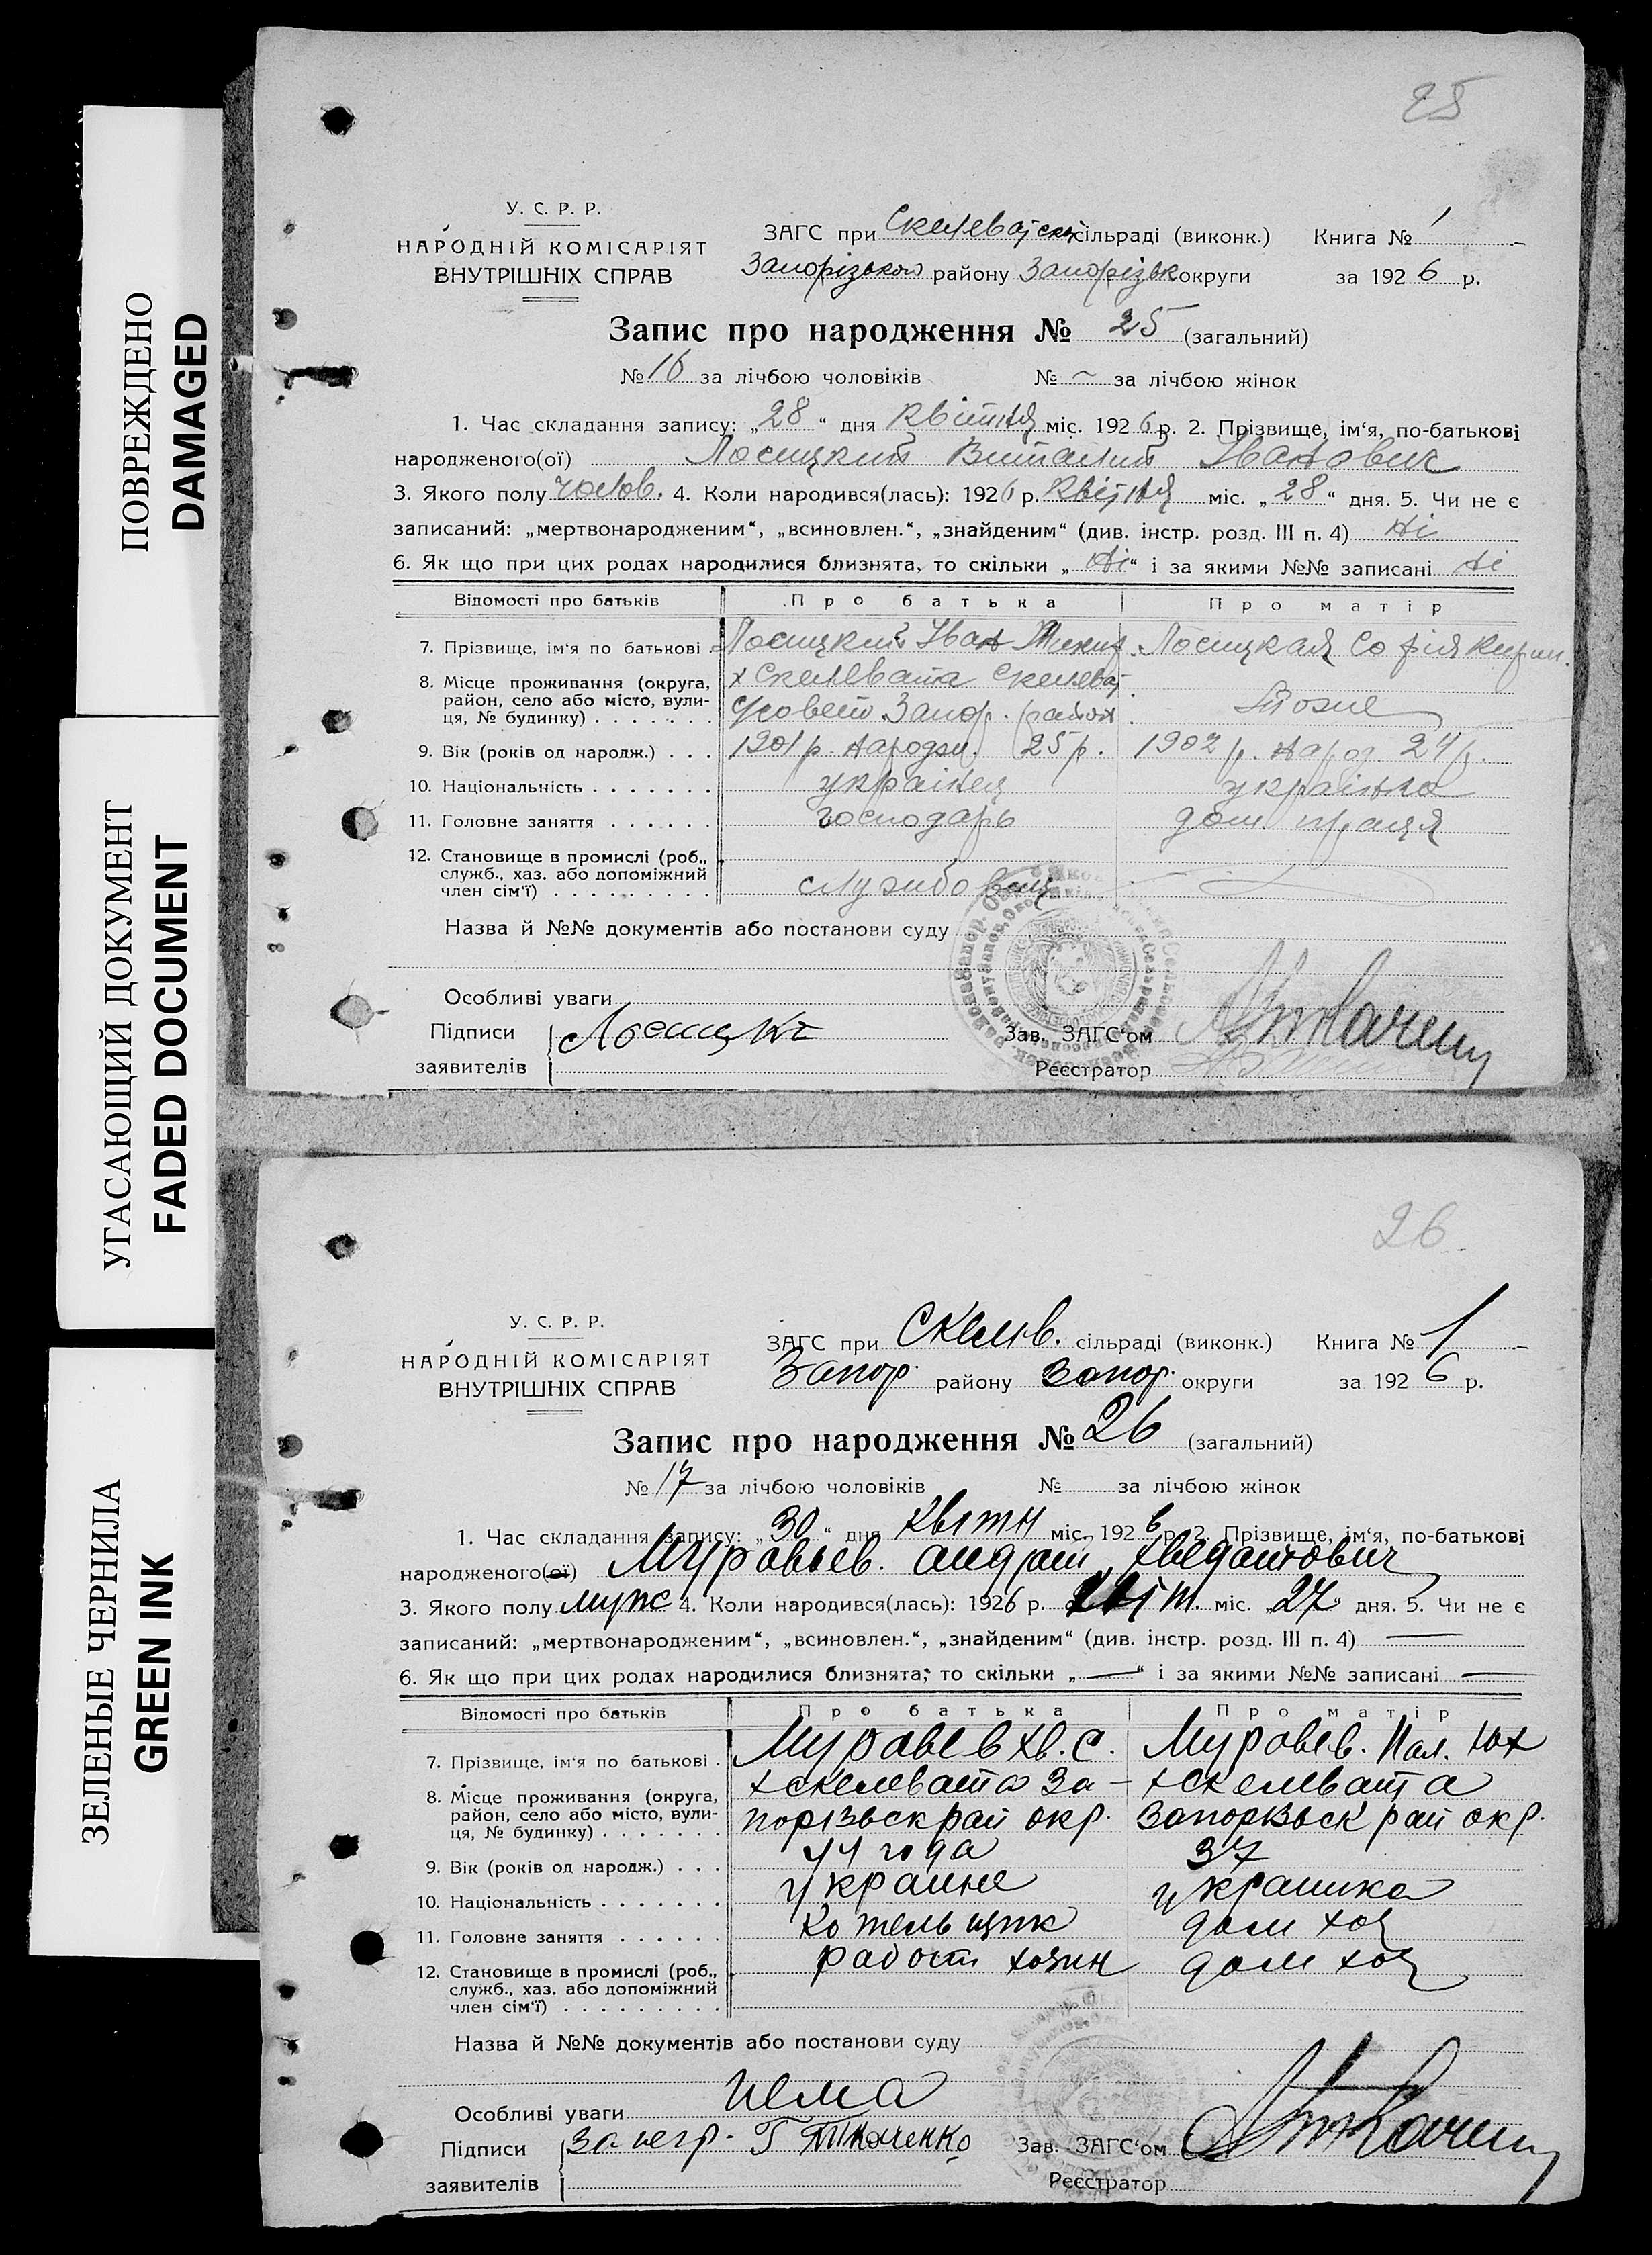 ПОВРЕЖДЕНО
DAMAGED
УГАСАЮЩИЙ ДОКУМЕНТ
FADED DOCUMENT
ЗЕЛЕНЫЕ ЧЕРНИЛА
GREEN INK
25
У. С. Р. Р.
НАРОДНІЙ КОМІСАРІЯТ
ВНУТРІШНІХ СПРАВ
ЗАГС при Скелеват ській сільраді (виконк.) Книга № 1
Запорізького району Запорізьк округи за 1926 р.
Запис про народження № 25 (загальний)
№ 16 за лічбою чоловіків № – за лічбою жінок
1. Час складання запису: „28“ дня Квітня міс. 1926 р. 2. Прізвище, ім‘я, по-батькові
народженого(ої) Лосицкий Виталий Іванович
3. Якого полу чолов. 4. Коли народився(лась): 1926 р. Квітня міс. „28“ дня. 5. Чи не є
записаний: „мертвонародженим“, „всиновлен.“, „знайденим“ (див. інстр. розд. III п. 4) Ні
6. Як що при цих родах народилися близнята, то скільки „Ні“ і за якими №№ записані Ні
Відомості про батьків Про батька Про матір
7. Прізвище, ім‘я по батькові Лосицкий Іван Лосицкая Софія
8. Місце проживання (округа, район, село або місто, вулиця, № будинку) х Скелевата Скелеват
Запор. район Тоже
9. Вік (років од народж.) 1901 р. народж. 25 р. 1902 р. народ. 24 р.
10. Національність українец українка
11. Головне заняття господарь дом. праця
12. Становище в промислі (роб., служб., хаз. або допоміжний член сім‘ї) службовец
Назва й №№ документів або постанови суду
Особливі уваги
Підписи заявителів Лосицки
Зав. ЗАГС‘ом
Реєстратор
26
У. С. Р. Р.
НАРОДНІЙ КОМІСАРІЯТ
ВНУТРІШНІХ СПРАВ
ЗАГС при Скелев. сільраді (виконк.) Книга № 1
Запор. району Запор. округи за 1926 р.
Запис про народження № 26 (загальний)
№ 17 за лічбою чоловіків № за лічбою жінок
1. Час складання запису: „30“ дня квітн міс. 1926 р. 2. Прізвище, ім‘я, по-батькові
народженого(ої) Муравьев. андрий
3. Якого полу муж 4. Коли народився(лась): 1926 р. квіт. міс. „27“ дня. 5. Чи не є
записаний: „мертвонародженим“, „всиновлен.“, „знайденим“ (див. інстр. розд. III п. 4) —
6. Як що при цих родах народилися близнята, то скільки „—“ і за якими №№ записані —
Відомості про батьків Про батька Про матір
7. Прізвище, ім‘я по батькові Муравев хв. С. Муровев. Пал. Юх
8. Місце проживання (округа, район, село або місто, вулиця, № будинку) х скелевата За- х скелевата
порізьск рай окр. Запорізьск рай окр.
9. Вік (років од народж.) 44 года 37
10. Національність украине украинка
11. Головне заняття Котельщик дом хоз
12. Становище в промислі (роб., служб., хаз. або допоміжний член сім‘ї) работ хозин дом хоз
Назва й №№ документів або постанови суду
Особливі уваги Нема
Підписи заявителів Г Ткаченко
Зав. ЗАГС‘ом
Реєстратор